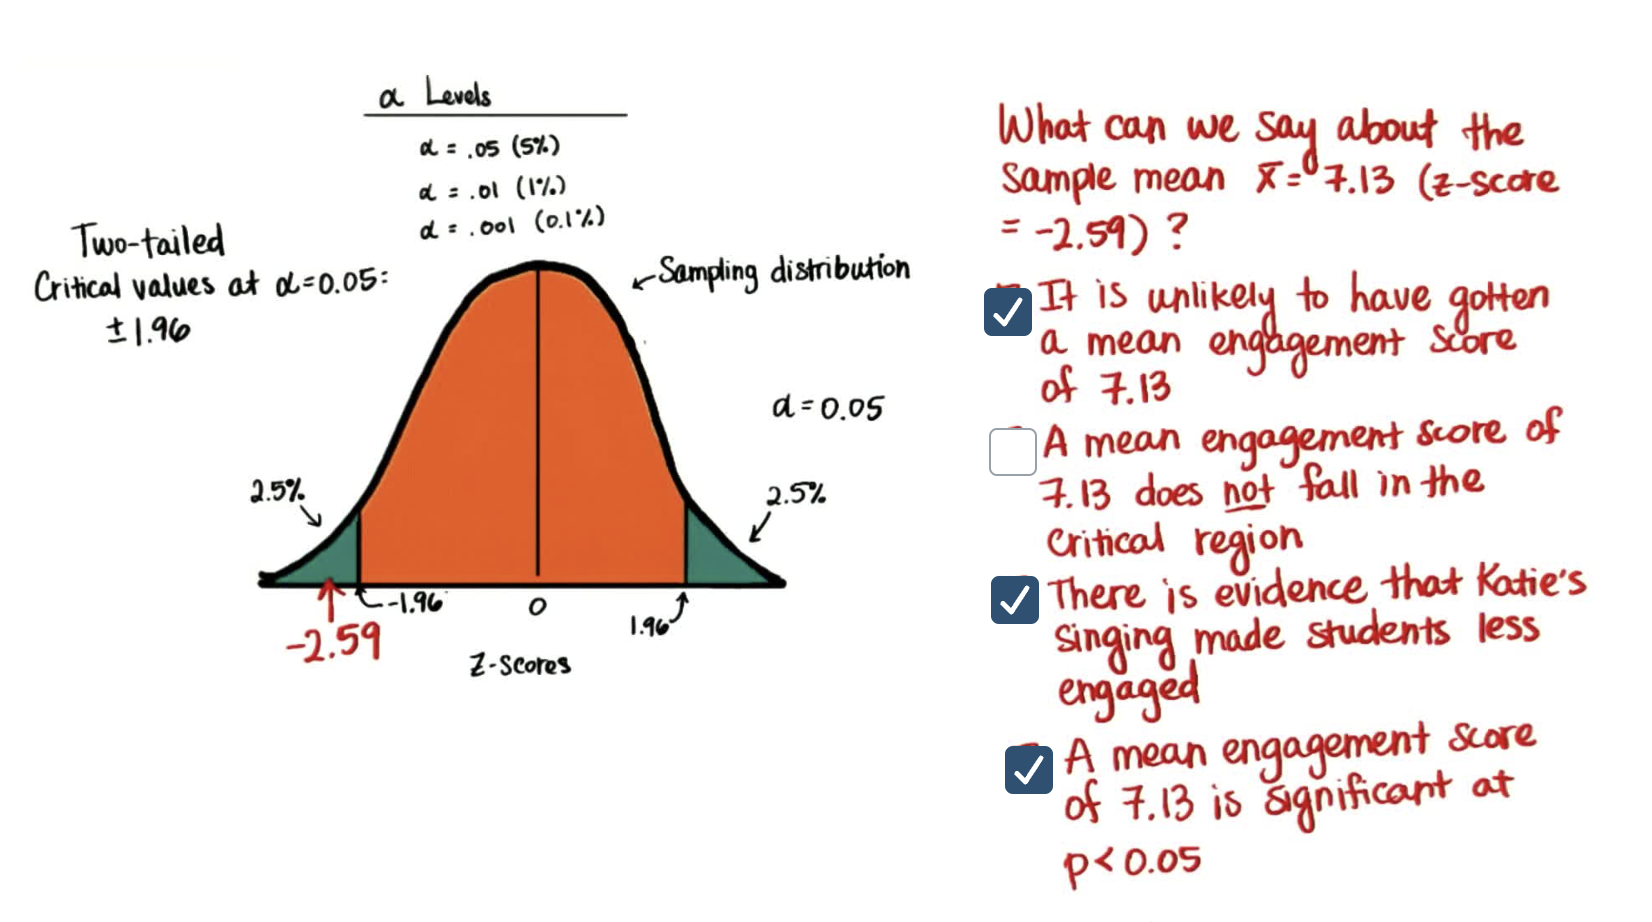 α Levels
α = .05 (5%)
α = .01 (1%)
α = .001 (0.1%)
Two-tailed
Critical values at α=0.05:
±1.96
Sampling distribution
α=0.05
2.5%
2.5%
-1.96
0
1.96
-2.59
Z-scores
What can we say about the
Sample mean x̄= 7.13 (z-score
= -2.59) ?
It is unlikely to have gotten
a mean engagement score
of 7.13
A mean engagement score of
7.13 does not fall in the
critical region
There is evidence that Katie's
singing made students less
engaged
A mean engagement score
of 7.13 is significant at
p< 0.05